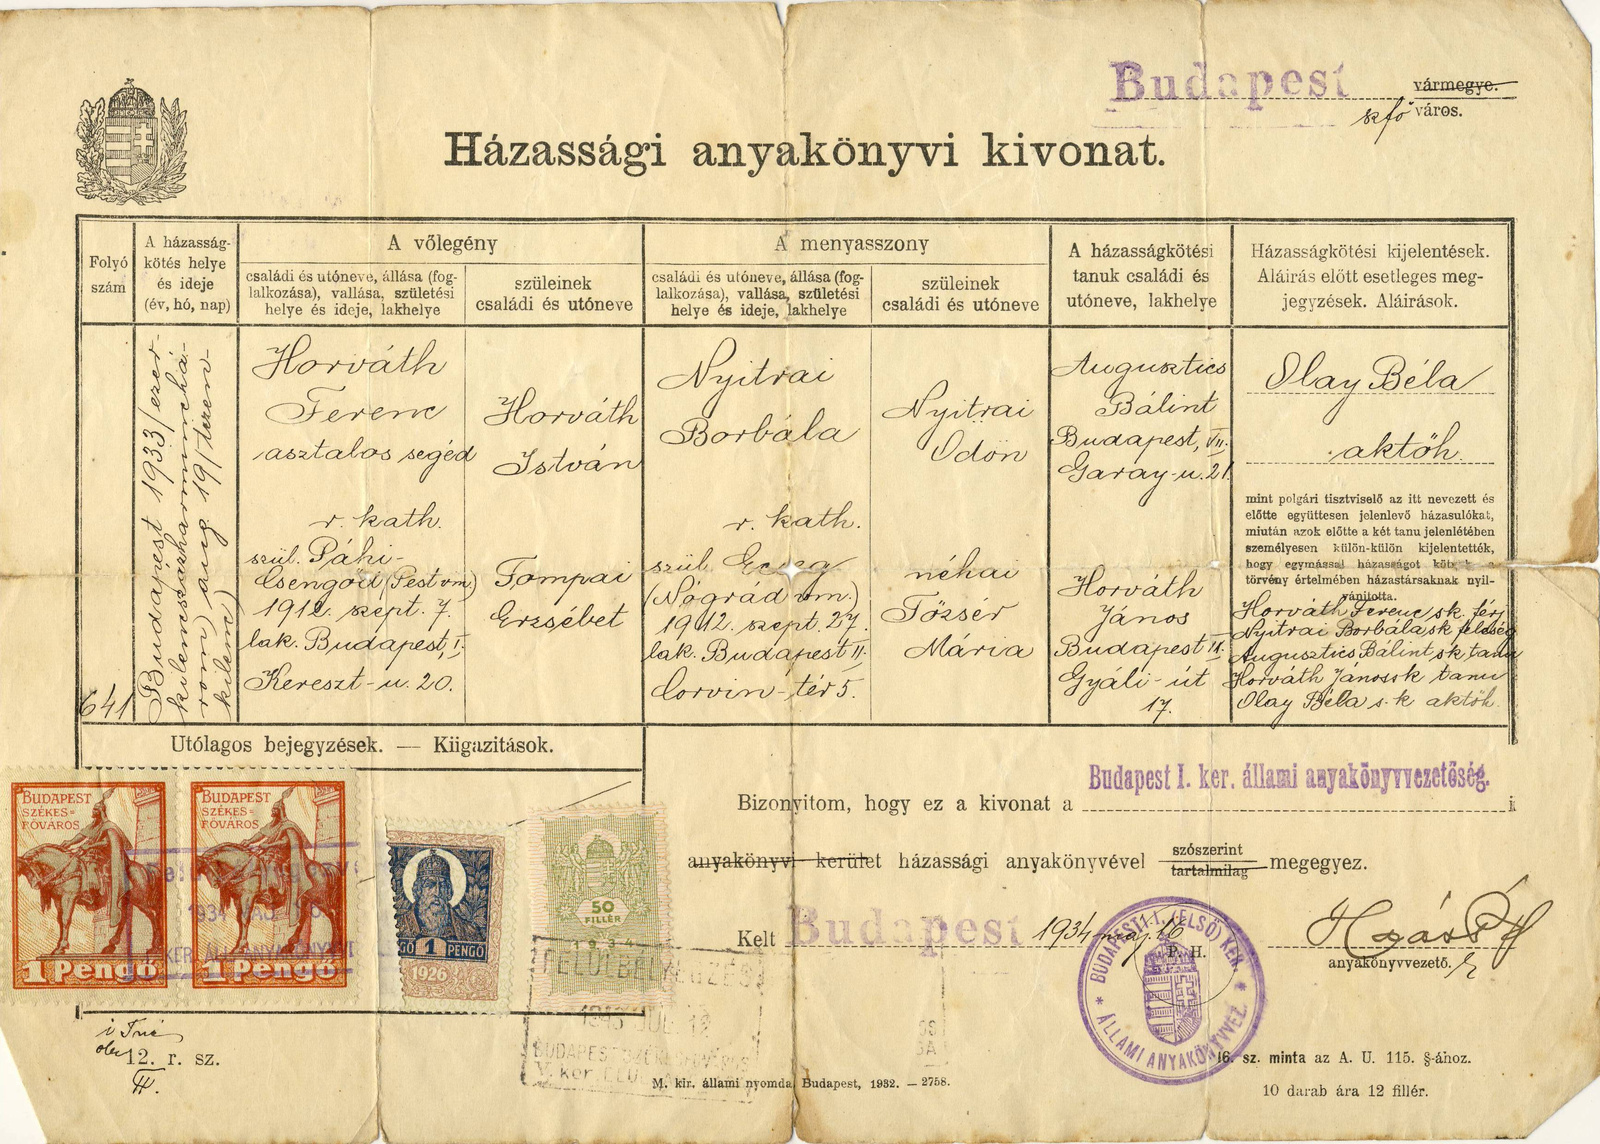 Budapest vármegye.
skfő város.
Házassági anyakönyvi kivonat.
Folyó szám
A házasság-
kötés helye
és ideje
(év, hó, nap)
A vőlegény
családi és utóneve, állása (fog-
lalkozása), vallása, születési
helye és ideje, lakhelye
szüleinek
családi és utóneve
A menyasszony
családi és utóneve, állása (fog-
lalkozása), vallása, születési
helye és ideje, lakhelye
szüleinek
családi és utóneve
A házasságkötési
tanuk családi és
utóneve, lakhelye
Házasságkötési kijelentések.
Aláirás előtt esetleges meg-
jegyzések. Aláirások.
641
Budapest 1933/ezer-
kilencszázharminchá-
rom) aug 19/tizen-
kilenc)
Horváth
Ferenc
asztalos segéd
r. kath.
szül. Páhi-
Csengőd (Pest vm.)
1912. szept. 7.
lak. Budapest, I.
Kereszt-u. 20.
Horváth
István
Tompai
Erzsébet
Nyitrai
Borbála
r. kath.
szül.
(Nógrád vm.)
1912. szept. 27.
lak. Budapest II.
Corvin-tér 5.
Nyitrai
Ödön
néhai
Tőzsér
Mária
Augusztics
Bálint
Budapest, VII.
Garay-u. 21.
Horváth
János
Budapest IX.
Gyáli-út
17.
Olay Béla
aktőh.
mint polgári tisztviselő az itt nevezett és
előtte együttesen jelenlevő házasulókat,
miután azok előtte a két tanu jelenlétében
személyesen külön-külön kijelentették,
hogy egymással házasságot kötnek a
törvény értelmében házastársaknak nyil-
vánitotta.
Horváth Ferenc sk. férj
Nyitrai Borbála sk feleség
Augusztics Bálint sk tanu
Horváth János sk tanu
Olay Béla s.k aktőh.
Utólagos bejegyzések. — Kiigazitások.
Budapest I. ker. állami anyakönyvvezetőség.
Bizonyitom, hogy ez a kivonat a
anyakönyvi kerület házassági anyakönyvével szószerint megegyez.
tartalmilag
Kelt Budapest 1934 máj. 16
P. H.
anyakönyvvezető. h
BUDAPESTI I. (ELSŐ) KER.
ÁLLAMI ANYAKÖNYVVEZ.
BUDAPEST
SZÉKES-
FŐVÁROS
1 Pengő
BUDAPEST
SZÉKES-
FŐVÁROS
1 Pengő
1934
KER. ÁLL. ANYAKÖNYVVEZ
GŐ 1 PENGŐ
1926
50
FILLÉR
1934
FELÜLBÉLYEGZÉS
JUL 12
BUDAPEST SZÉKESFŐVÁROS
V. ker.
12. r. sz.
M. kir. állami nyomda Budapest, 1932. — 2758.
16. sz. minta az A. U. 115. §-ához.
10 darab ára 12 fillér.